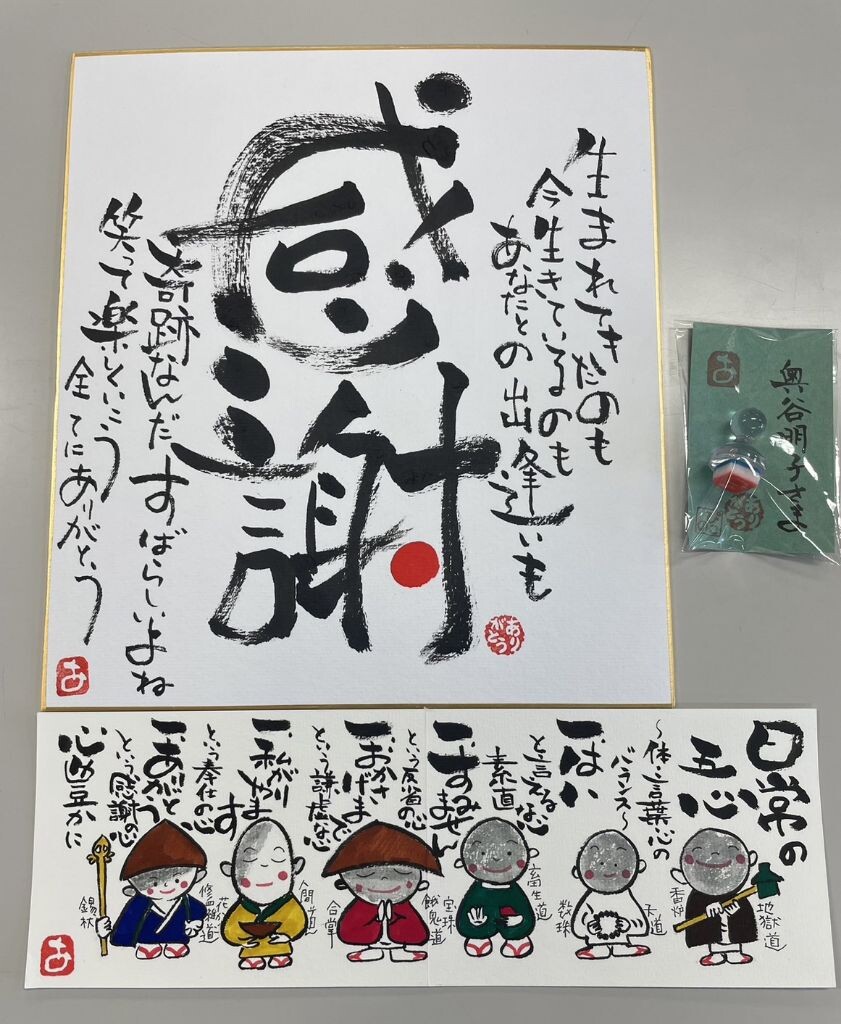 感謝
生まれてきたのも
今生きているのも
あなたとの出逢いも
奇跡なんだすばらしいよね
笑って楽しくいこう
全てにありがとう
ありがとう
奥谷明子さま
日常の
五心
〜体・言葉・心の
バランス〜
一、はい
と言える
素直な心
一、すみません
という反省の心
一、おかげさまで
という謙虚な心
一、私がします
という奉仕の心
一、ありがとう
という感謝の心
心豊かに
地獄道
香炉
天道
数珠
畜生道
宝珠
餓鬼道
合掌
人間道
花
修羅道
錫杖